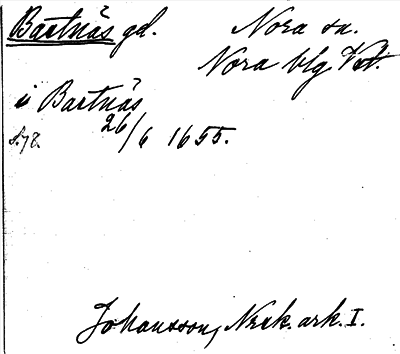 Bartnäs gd. Nora sn.
Nora blg Vstl.
i Bartnäs
26/6 1655.
s. 78.
Johansson, Nerk. ark. I.